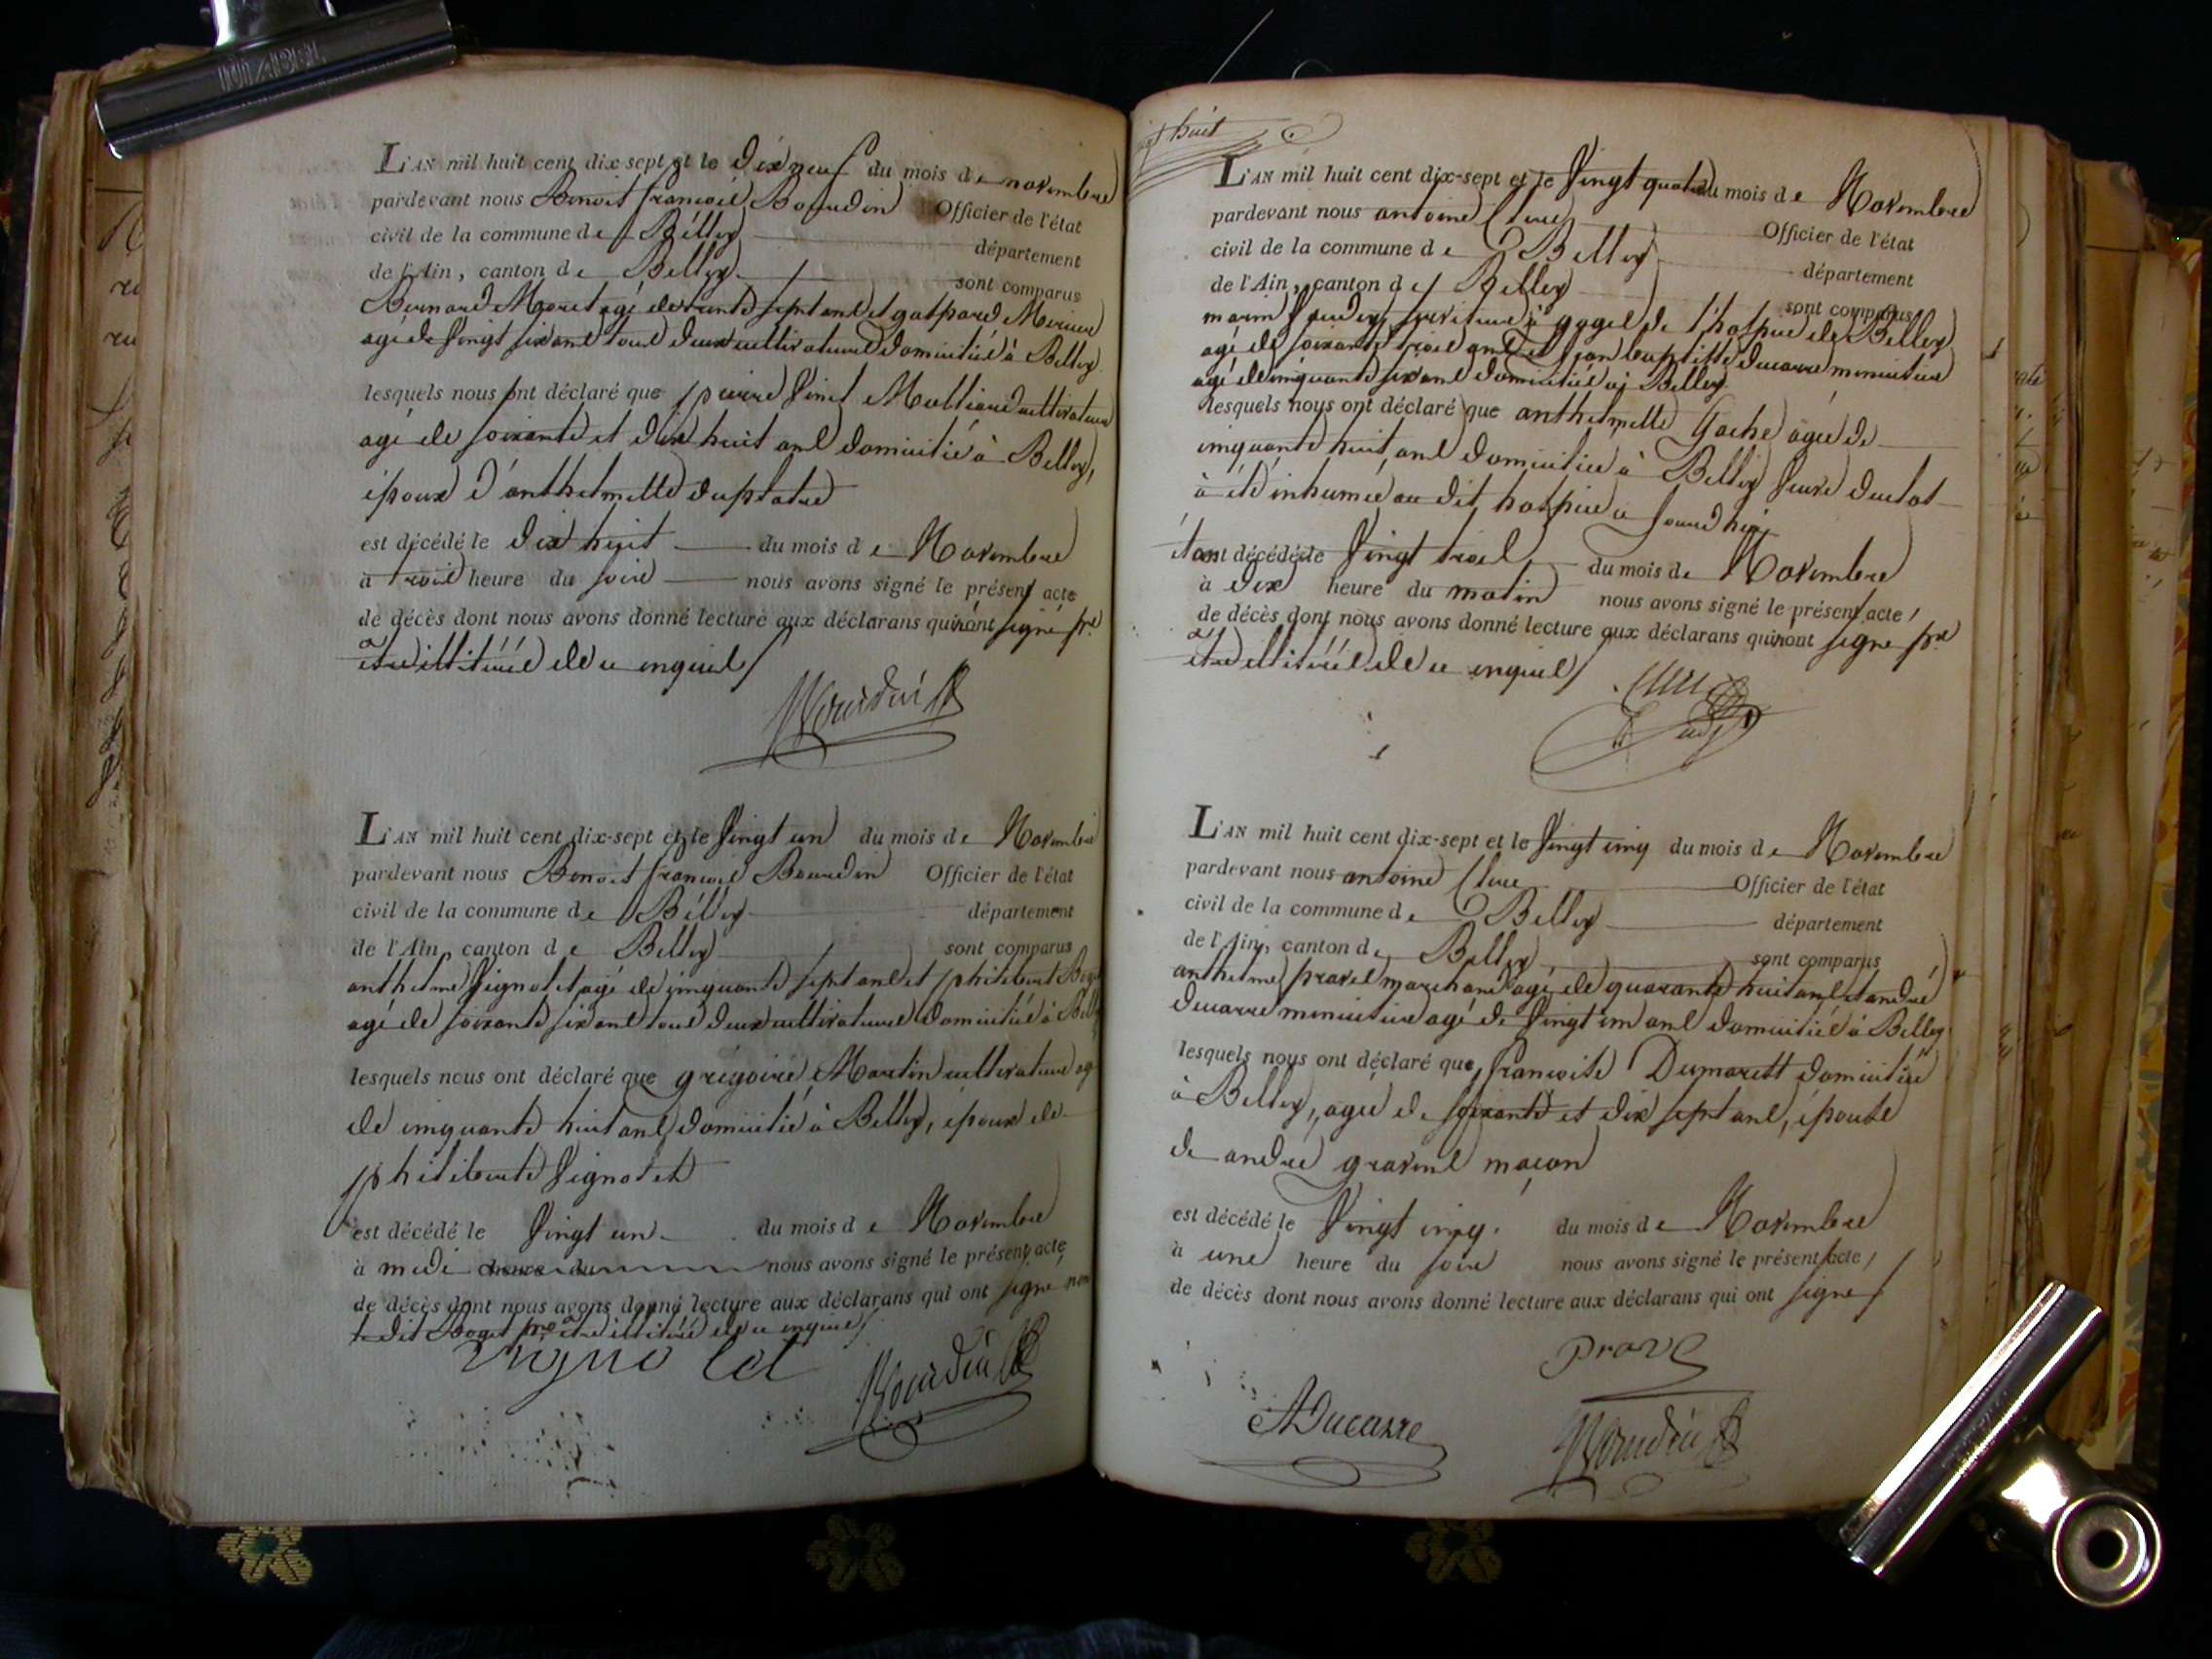 L'AN mil huit cent dix-sept et le dix neuf du mois de novembre
pardevant nous Benoit françois Bourdin Officier de l'état
civil de la commune de Belley département
de l'Ain, canton de Belley sont comparus
Bernard Moret agé de trente sept ans et gaspard
agé de vingt six ans tous deux cultivateurs domiciliés à Belley
lesquels nous ont déclaré que pierre cultivateur
agé de soixante et dix huit ans domicilié à Belley,
époux d'anthelmette duplatre
est décédé le dix huit du mois de Novembre
à trois heure du soir nous avons signé le présent acte
de décès dont nous avons donné lecture aux déclarans qui n'ont signé pr
etre illitérés de ce enquis
Bourdin
L'AN mil huit cent dix-sept et le vingt un du mois de Novembre
pardevant nous Benoit françois Bourdin Officier de l'état
civil de la commune de Belley département
de l'Ain, canton de Belley sont comparus
anthelme vignolet agé de cinquante sept ans et philibert
agé de soixante six ans tous deux cultivateurs domiciliés à
lesquels nous ont déclaré que grégoire Martin cultivateur
de cinquante huit ans domicilié à Belley, époux de
philiberte vignolet
est décédé le vingt un du mois de Novembre
à midi heure du nous avons signé le présent acte
de décès dont nous avons donné lecture aux déclarans qui ont signé non
le dit Boget pr etre illitéré de ce enquis
vignolet
Bourdin
huit
L'AN mil huit cent dix-sept et le vingt quatre du mois de Novembre
pardevant nous antoine Officier de l'état
civil de la commune de Belley département
de l'Ain, canton de Belley sont comparus
marin serviteur à gages de l'hospice de Belley
agé de soixante trois ans et jean baptiste ducarre menuisier
agé de cinquante six ans domiciliés à Belley
lesquels nous ont déclaré que anthelmette Gache agée de
cinquante huit ans domiciliée à Belley veuve
à été inhumée au dit hospice ce jourd'hui
étant décédée le vingt trois du mois de Novembre
à dix heure du matin nous avons signé le présent acte
de décès dont nous avons donné lecture aux déclarans qui n'ont signé pr
etre illitérés de ce enquis
L'AN mil huit cent dix-sept et le vingt cinq du mois de Novembre
pardevant nous antoine Officier de l'état
civil de la commune de Belley département
de l'Ain, canton de Belley sont comparus
anthelme pravel marchand agé de quarante huit ans et andré
ducarre menuisier agé de vingt ans domiciliés à Belley
lesquels nous ont déclaré que françoise Dumarest domiciliée
à Belley, agée de soixante et dix sept ans, épouse
de andré maçon
est décédé le vingt cinq du mois de Novembre
à une heure du soir nous avons signé le présent acte
de décès dont nous avons donné lecture aux déclarans qui ont signé
Pravel
ADucarre
Bourdin